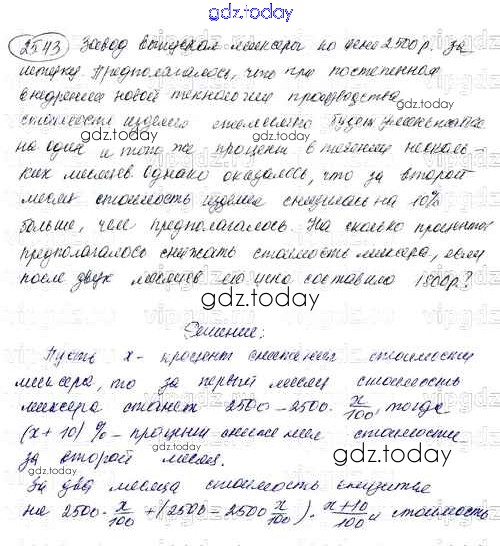 gdz.today
2543 Завод выпускал миксеры по цене 2500 р. за
штуку. Предполагалось, что при постепенном
внедрении новой технологии производства
стоимость изделия ежемесячно будет уменьшаться
gdz.today gdz.today
на один и тот же процент в течение несколь-
ких месяцев. Однако оказалось, что за второй
месяц стоимость изделия снизилась на 10%
больше, чем предполагалось. На сколько процентов
предполагалось снижать стоимость миксера, если
после двух месяцев его цена составила 1800р?
gdz.today
Решение:
Пусть x - процент снижения стоимости
миксера, то за первый месяц стоимость
миксера станет 2500 - 2500 · x/100, тогда
gdz.today
(x + 10) % - процент снижения стоимости
за второй месяц.
gdz.today
За два месяца стоимость снизится
на 2500 · x/100 + (2500 - 2500 x/100) · x+10/100 и стоимость
gdz.today